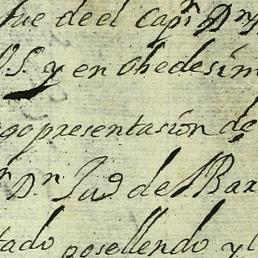 fue de el Capn Dn
S. y en obedesim
go presentasion de
n Dn Jud de Bax
tado posellendo y l